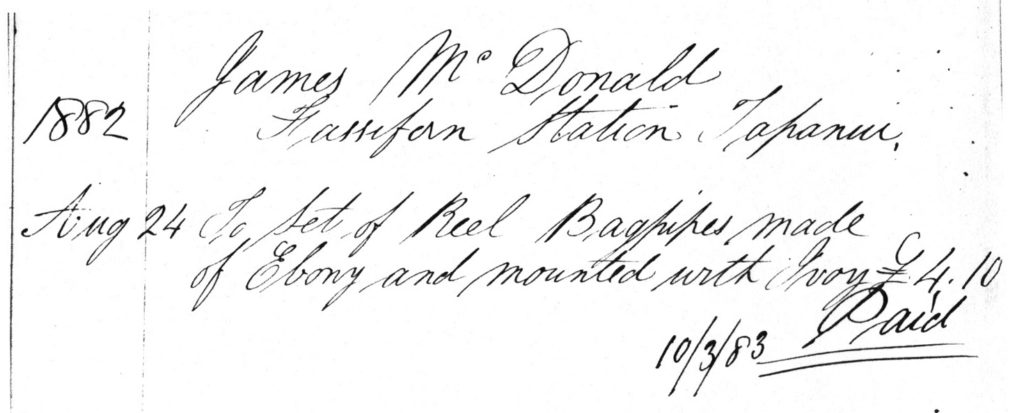 James Mc Donald
1882 Fassifern Station Tapanui.
Aug 24 To Set of Reel Bagpipes made
of Ebony and mounted with Ivoy £4.10
Paid
10/3/83